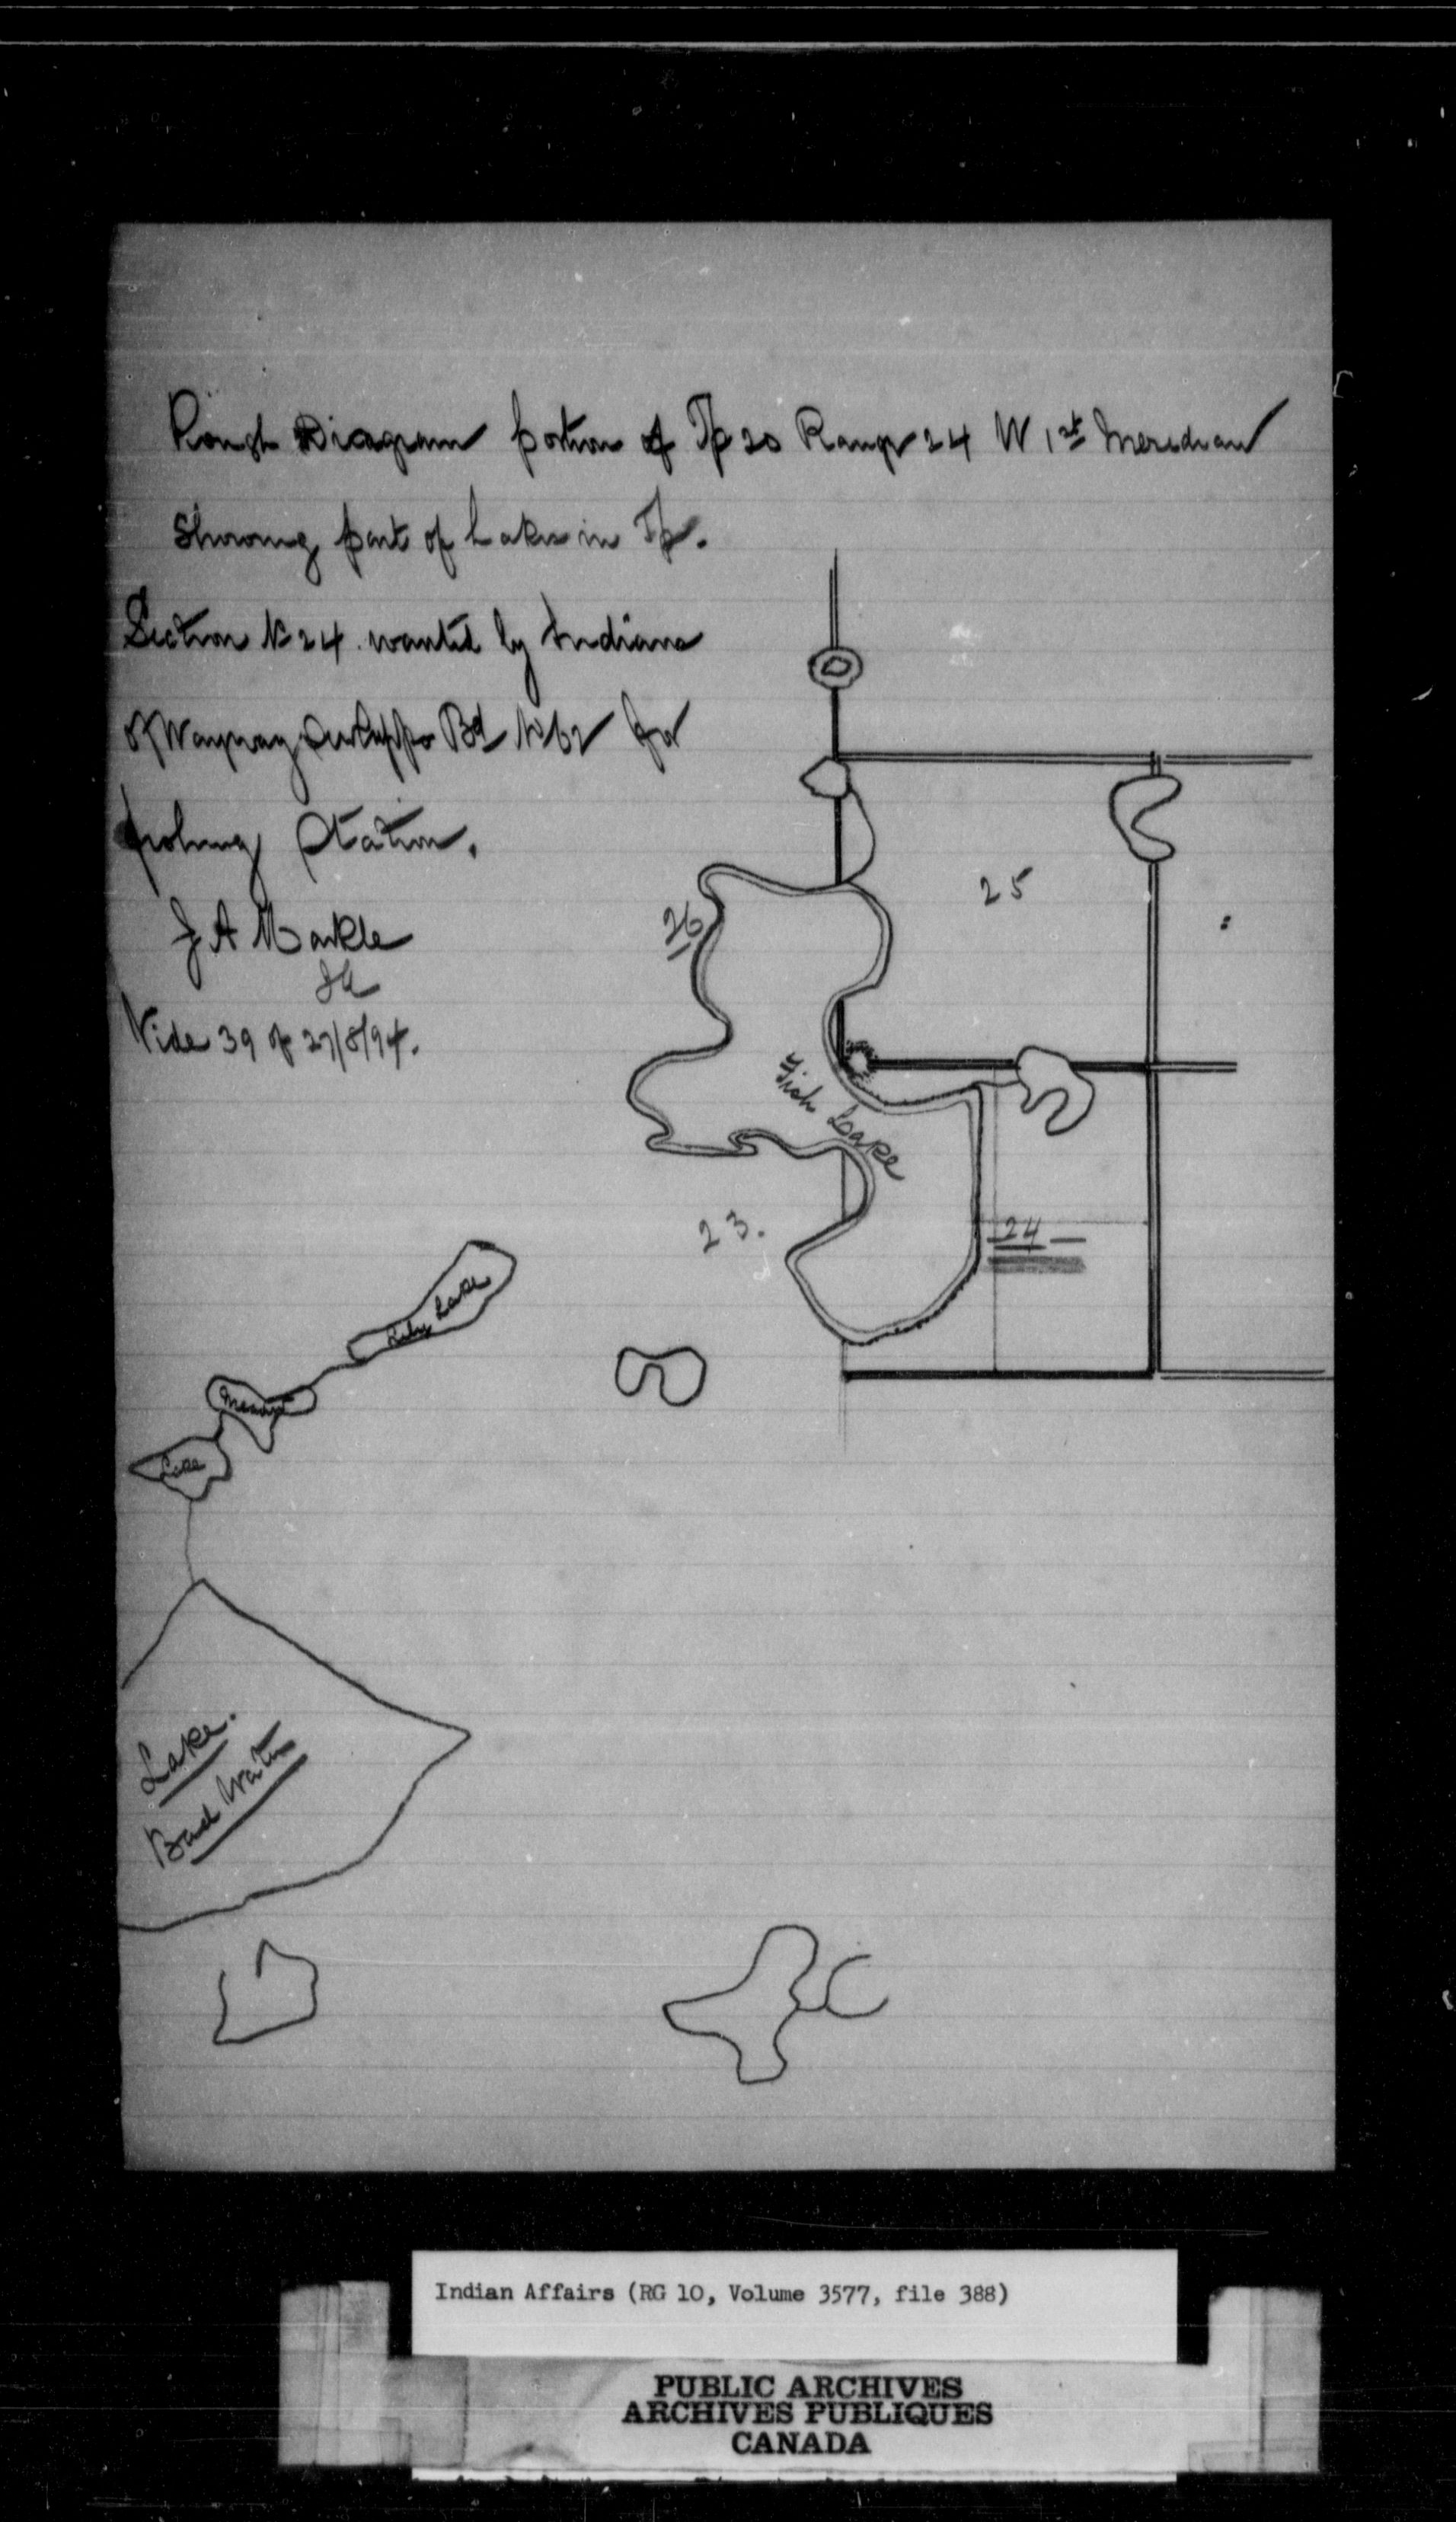 Rough Diagram portion of Tp 20 Range 24 W 1st Meridian
Showing part of Lakes in Tp.
Section No 24. wanted by Indians
of Bd No 62 for
fishing Station.
J A Markle
Vide 39 of 27/8/94.
25
26
Fish Lake
24
23.
Lily Lake
Lake
Lake.
Bad Water
Indian Affairs (RG 10, Volume 3577, file 388)
PUBLIC ARCHIVES
ARCHIVES PUBLIQUES
CANADA